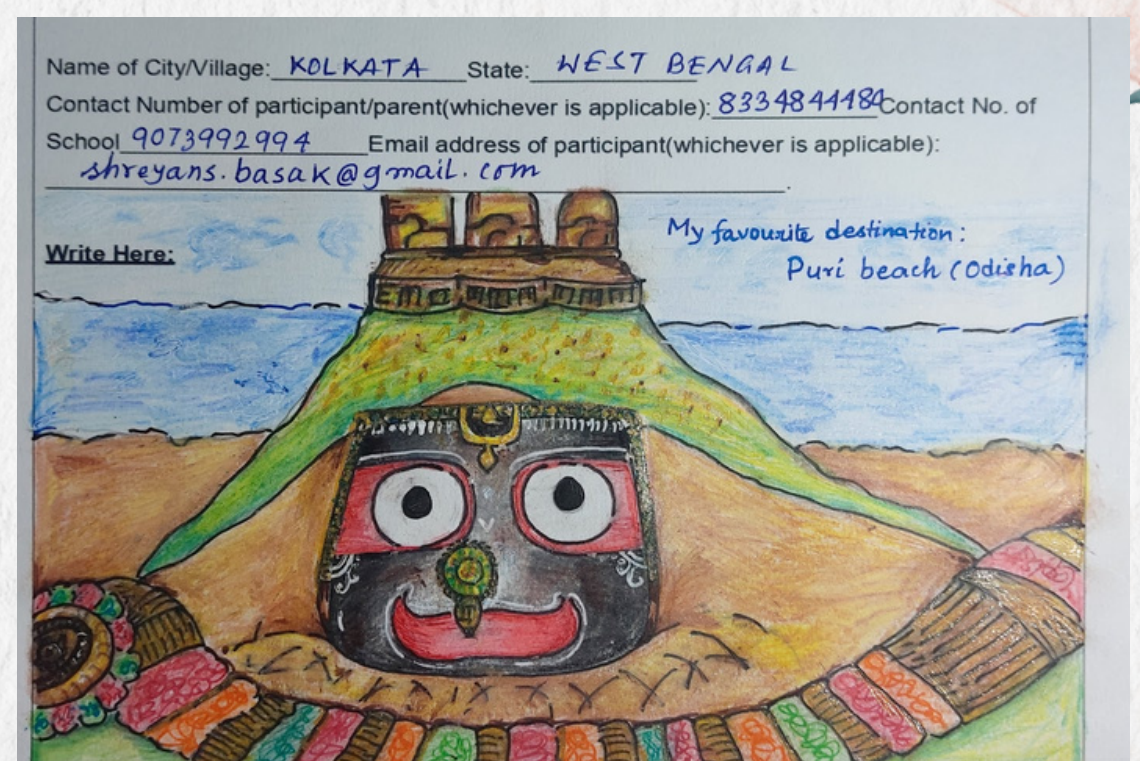 Name of City/Village: KOLKATA State: WEST BENGAL
Contact Number of participant/parent(whichever is applicable): 8334844484 Contact No. of
School 9073992994 Email address of participant(whichever is applicable):
shreyans.basak@gmail.com
My favourite destination:
Write Here:
Puri beach (Odisha)